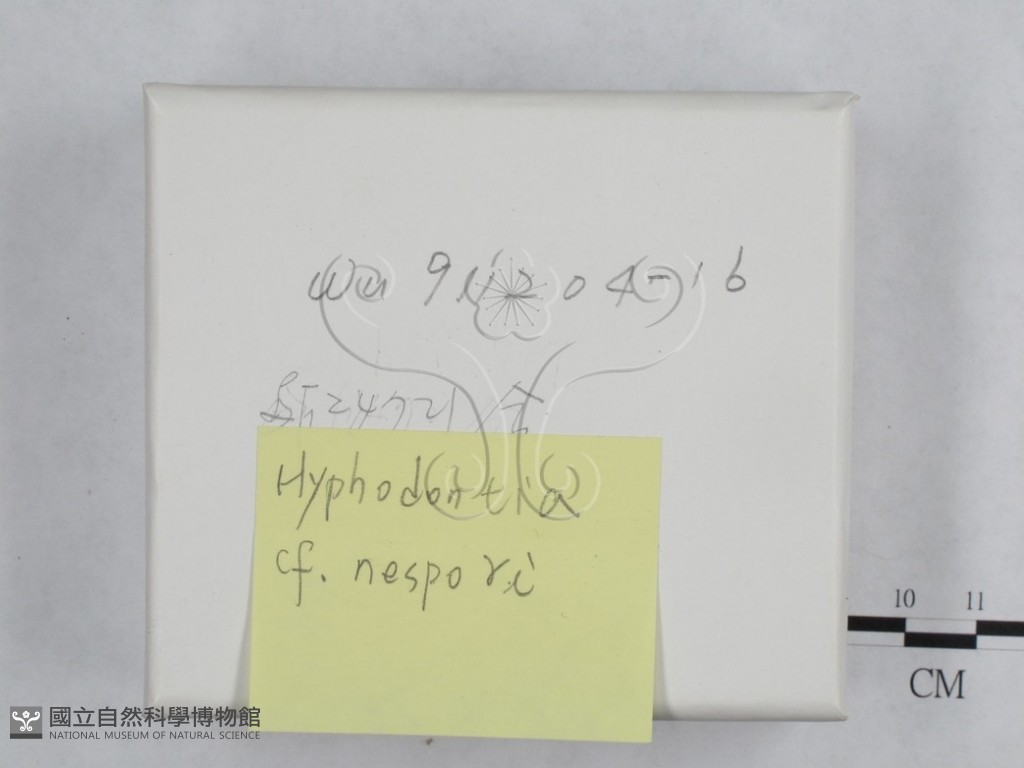 Wu 911204-16
Hyphodontia
cf. nespori
10 11
CM
國立自然科學博物館
NATIONAL MUSEUM OF NATURAL SCIENCE